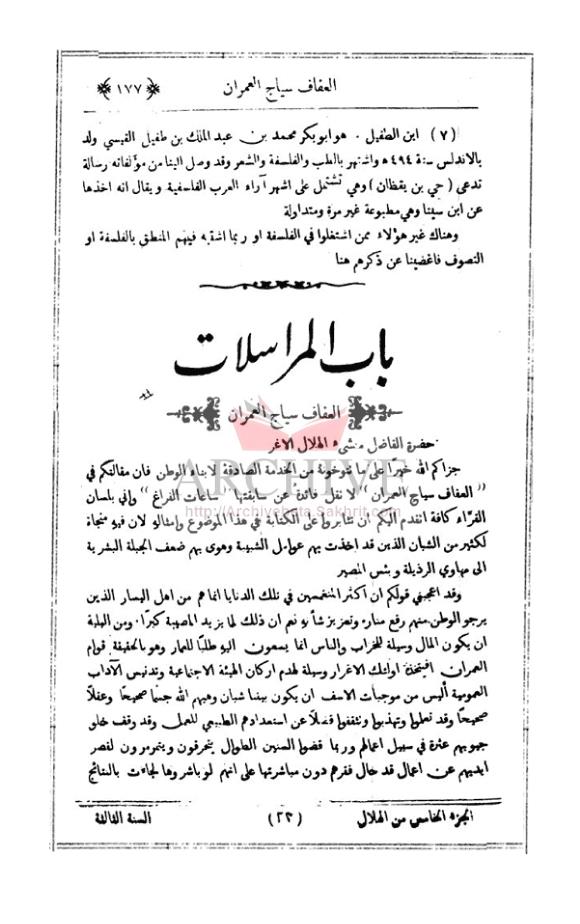 العفاف سياج العمران ﴿١٧٧﴾
(٧) ابن الطفيل . هو ابو بكر محمد بن عبد الملك بن طفيل القيسي ولد
بالاندلس سنة ٤٩٤ﻫ واشتهر بالطب والفلسفة والشعر وقد وصل الينا من مؤلفاته رسالة
تدعى (حي بن يقظان) وهي تشتمل على اشهر آراء العرب الفلسفية ويقال انه اخذها
عن ابن سينا وهي مطبوعة غير مرة ومتداولة
وهناك غير هؤلاء ممن اشتغلوا في الفلسفة او ربما اشتبه فيهم المنطق بالفلسفة او
التصوف فاغضينا عن ذكرهم هنا
باب المراسلات
العفاف سياج العمران
حضرة الفاضل منشىء الهلال الاغر
جزاكم الله خيرًا على ما تتوخونه من الخدمة الصادقة لابناء الوطن فان مقالتكم في
"العفاف سياج العمران" لا تقل فائدة عن سابقتها "ساعات الفراغ" واني بلسان
القرَّاء كافة اتقدم اليكم ان تثابروا على الكتابة في هذا الموضوع وامثاله لان فيه منجاة
لكثير من الشبان الذين قد اخذت بهم عوامل الشبيبة وهوى بهم ضعف الجبلة البشرية
الى مهاوي الرذيلة وبئس المصير
وقد اعجبني قولكم ان اكثر المنغمسين في تلك الدنايا انما هم من اهل اليسار الذين
يرجو الوطن منهم رفع مناره وتعزيز شأنه نعم ان ذلك لما يزيد المصيبة كبرًا. ومن البلية
ان يكون المال وسيلة للخراب والناس انما يسعون اليه طلبًا للعمار وهو بالحقيقة قوام
العمران فيتخذه اولئك الاغرار وسيلة لهدم اركان الهيئة الاجتماعية وتدنيس الآداب
العمومية أليس من موجبات الاسف ان يكون بيننا شبان وهبهم الله جسمًا صحيحًا وعقلًا
صحيحًا وقد تعلموا وتهذبوا وتثقفوا فضلًا عن استعدادهم الطبيعي للعمل وقد وقف خلو
جيوبهم عثرة في سبيل اعمالهم وربما قضوا السنين الطوال يتحرقون ويتمرمرون لقصر
ايديهم عن اعمال قد حال فقرهم دون مباشرتها على انهم لو باشروها لجاءت بالنتائج
الجزء الخامس من الهلال (٢٣) السنة الثالثة
ARCHIVE
http://Archivebeta.Sakhrit.com